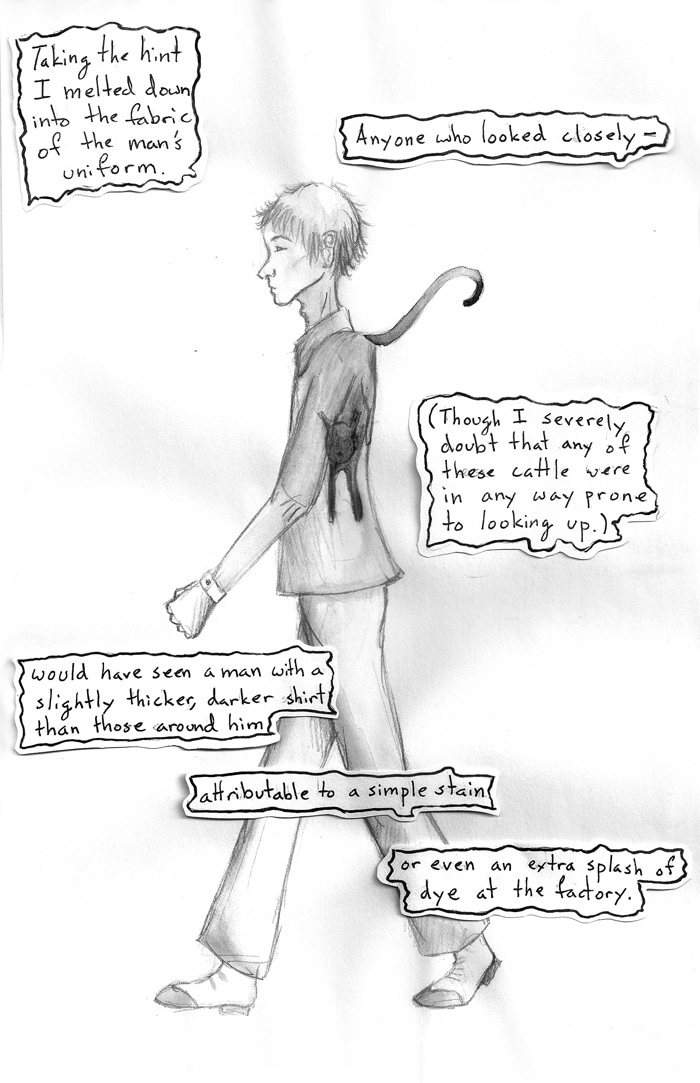 Taking the hint
I melted down
into the fabric
of the man's
uniform.
Anyone who looked closely –
(Though I severely
doubt that any of
these cattle were
in any way prone
to looking up.)
would have seen a man with a
slightly thicker, darker shirt
than those around him
attributable to a simple stain
or even an extra splash of
dye at the factory.